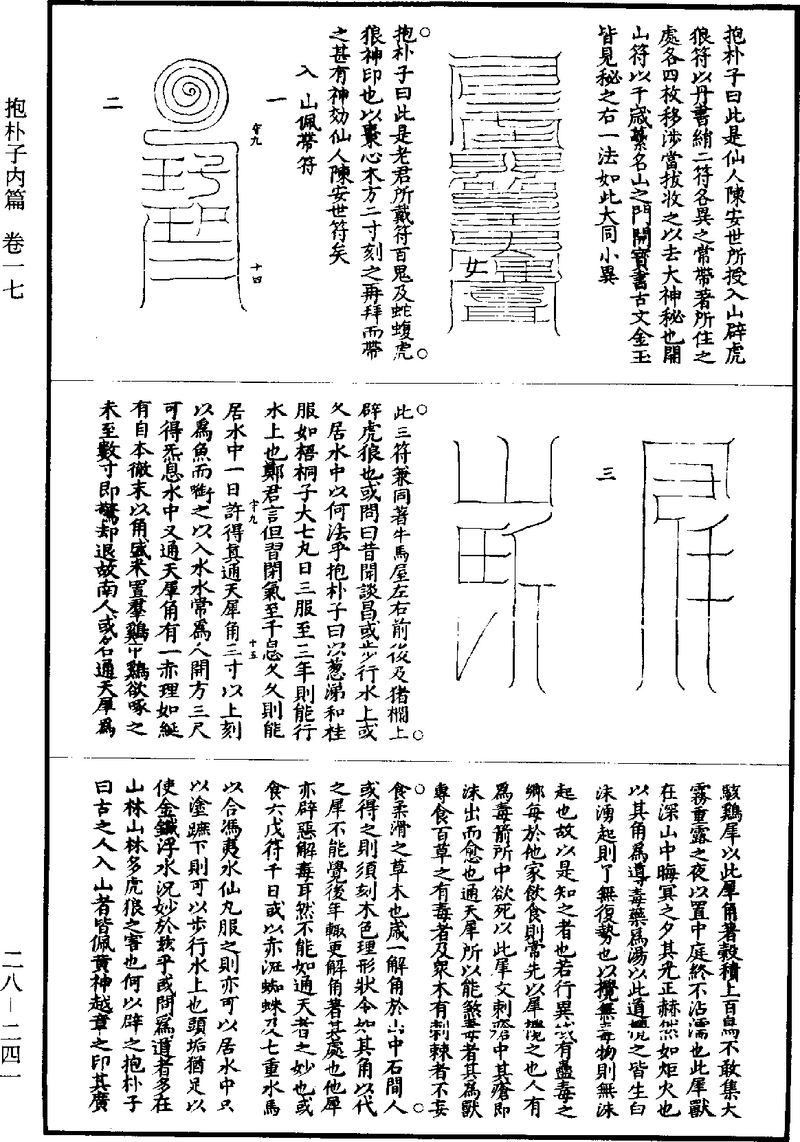 抱朴子内篇　卷一七
二八—二四一
抱朴子曰此是仙人陳安世所授入山辟虎
狼符以丹書絹二符各異之常帶著所住之
處各四枚移涉當拔收之以去大神秘也開
山符以千歲蘽名山之門開寶書古文金玉
皆見秘之右一法如此大同小異
抱朴子曰此是老君所戴符百鬼及蛇蝮虎
狼神印也以棗心木方二寸刻之再拜而帶
之甚有神効仙人陳安世符矣
入山佩帶符
一
守九
十四
二
三
此三符兼同著牛馬屋左右前後及猪欄上
辟虎狼也或問曰昔聞談昌或步行水上或
久居水中以何法乎抱朴子曰以葱涕和桂
服如梧桐子大七丸日三服至三年則能行
水上也鄭君言但習閉氣至千息久久則能
居水中一日許得真通天犀角三寸以上刻
守九
十五
以爲魚而銜之以入水水常爲人開方三尺
可得炁息水中又通天犀角有一赤理如綖
有自本徹末以角盛米置羣鷄中鷄欲啄之
未至數寸即驚却退故南人或名通天犀爲
駭鷄犀以此犀角著穀積上百鳥不敢集大
霧重露之夜以置中庭終不沾濡也此犀獸
在深山中晦冥之夕其光正赫然如炬火也
以其角爲導毒藥爲湯以此道攪之皆生白
沫湧起則了無復勢也以攪無毒物則無沫
起也故以是知之者也若行異域有蠱毒之
鄉每於他家飲食則常先以犀攪之也人有
爲毒箭所中欲死以此犀文刺瘡中其瘡即
沫出而愈也通天犀所以能煞毒者其爲獸
專食百草之有毒者及眾木有刺棘者不妄
食柔滑之草木也歲一解角於山中石間人
或得之則須刻木色理形狀令如其角以代
之犀不能覺後年輒更解角著其處也他犀
亦辟惡解毒耳然不能如通天者之妙也或
食六戊符千日或以赤涎蜘蛛及七重水馬
以合馮夷水仙丸服之則亦可以居水中只
以塗蹠下則可以步行水上也頭垢猶足以
使金鐵浮水況妙於玆乎或問爲道者多在
山林山林多虎狼之害也何以辟之抱朴子
曰古之人入山者皆佩黃神越章之印其廣